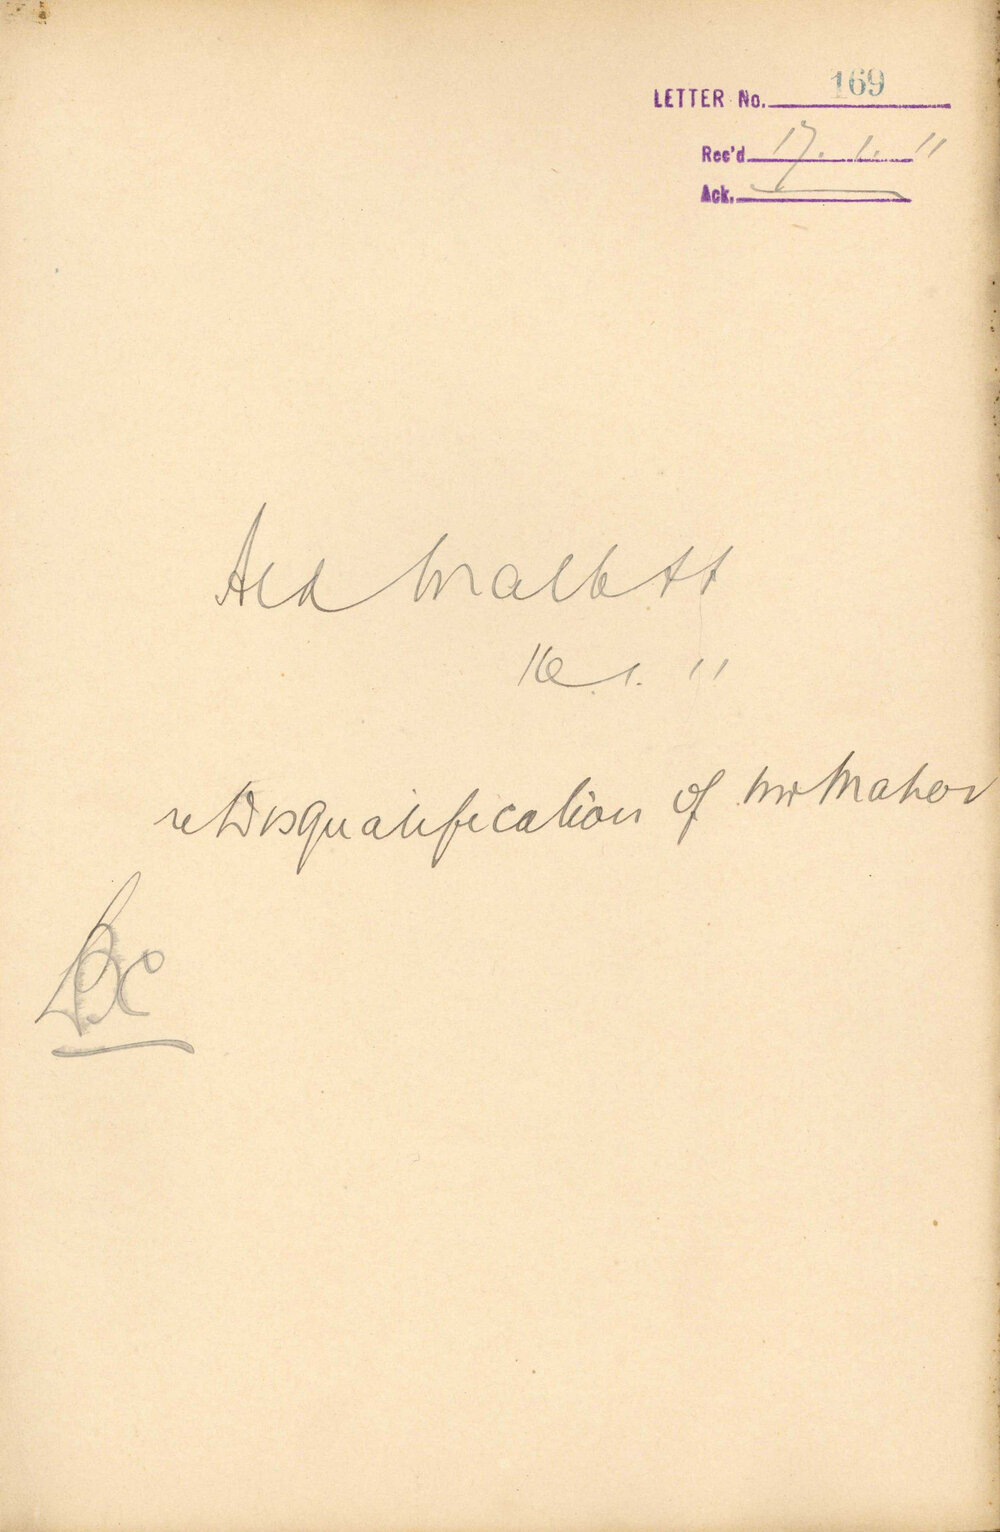 LETTER No. 169
Rec'd 17. 1. 11
Ack.
Ald Malbott
16. 1. 11
re Disqualification of Mr Maher